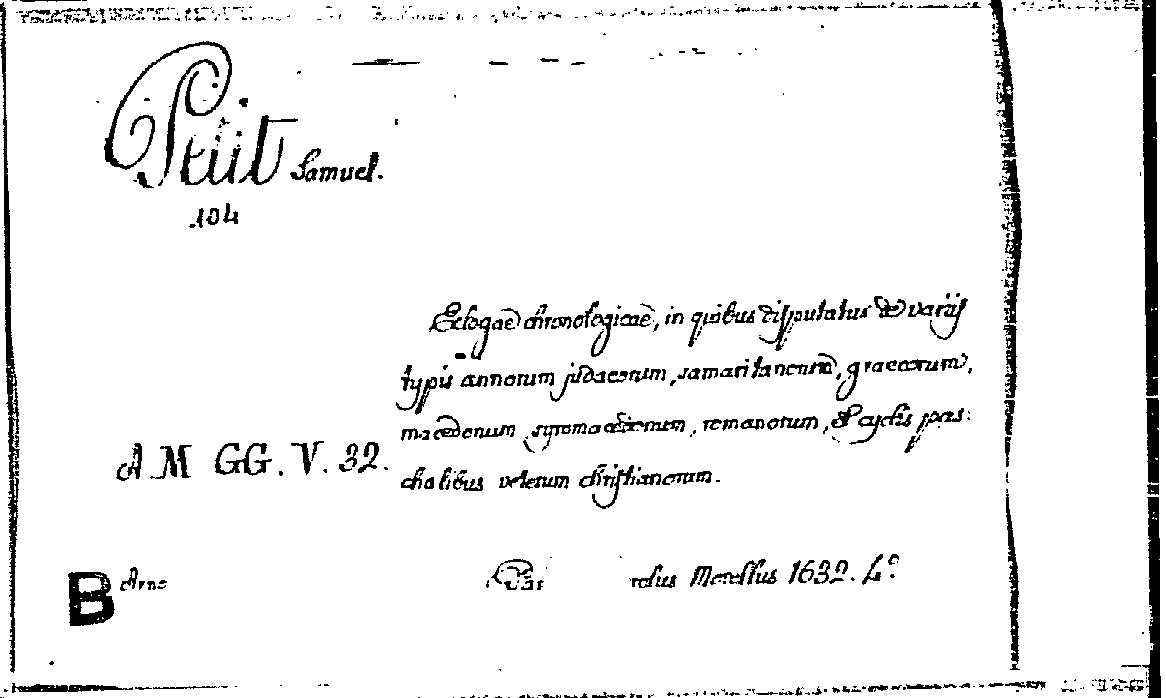 Petit Samuel.
104
Eclogae chronologicae, in quibus disputatus de variis
typis annorum judaeorum, samaritanorum, graecorum,
macedonum, syromacedonum, romanorum, & cyclis pas:
A M GG. V. 32. chalibus veterum christianorum.
B Morellus 1632. 4.º